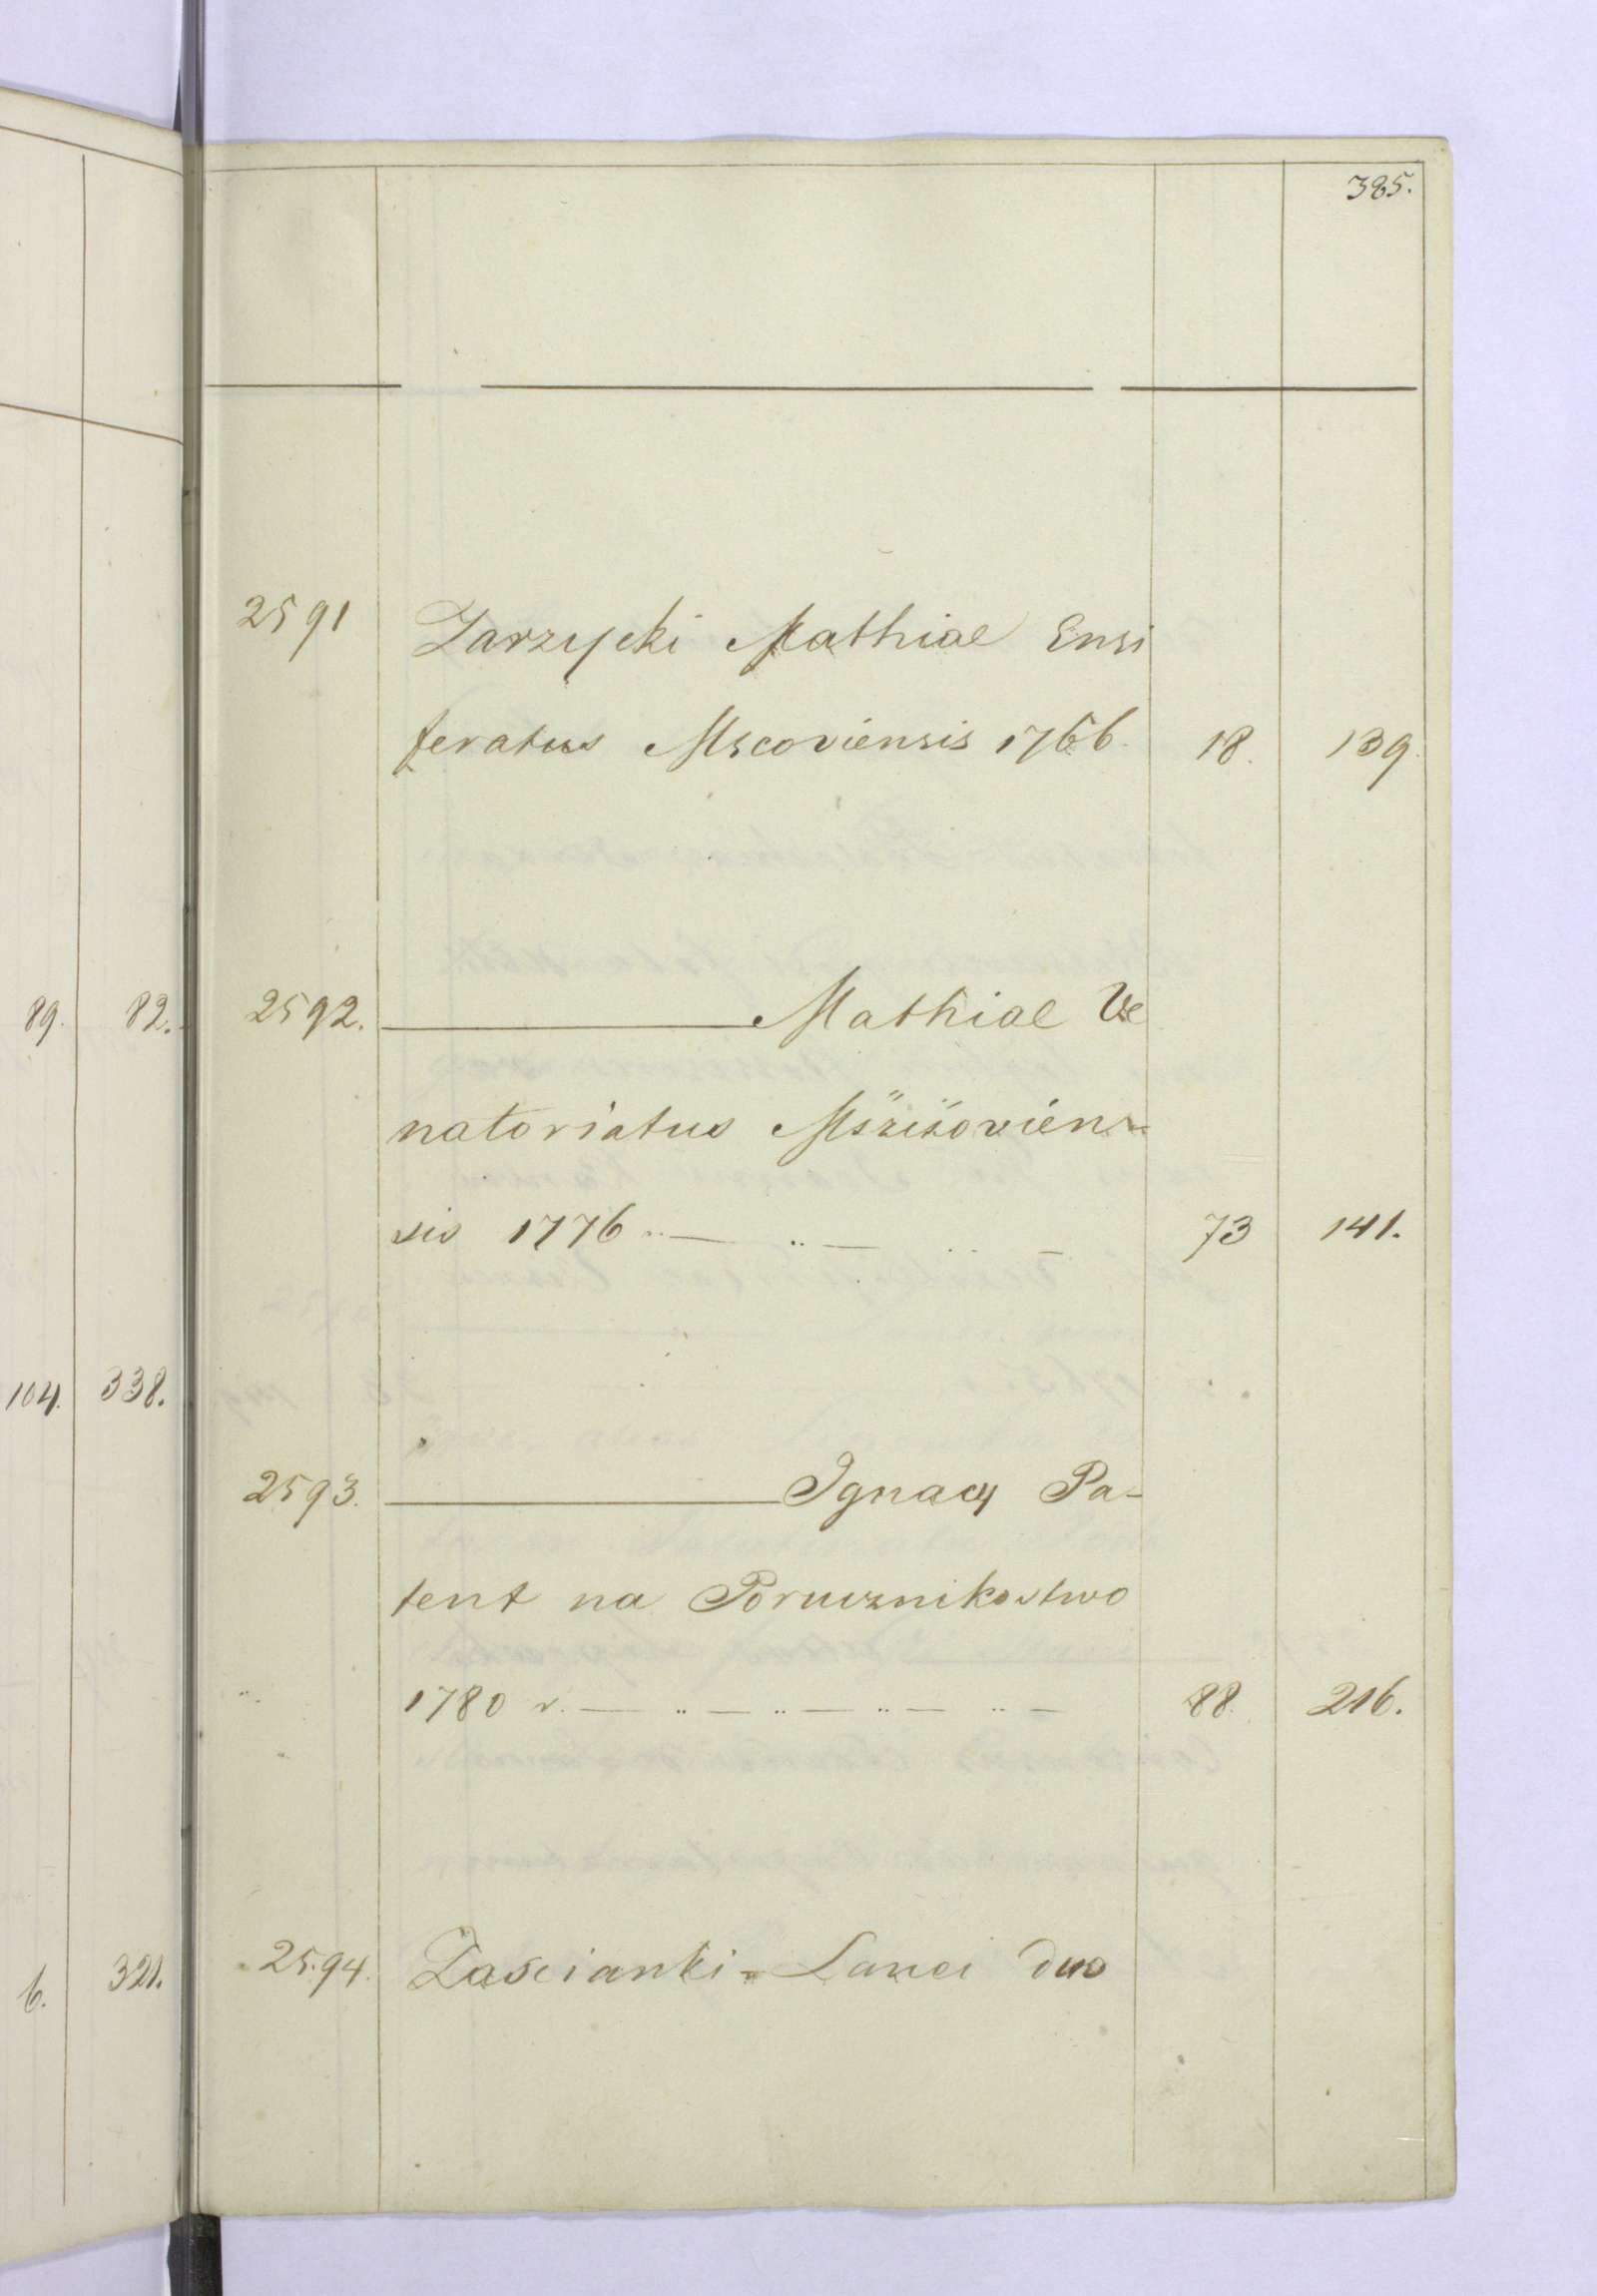 385.
2591 Zarzycki Mathiae Ensi
feratus Mscoviensis 1766. 18. 139.
89. 82. 2592. ——— Mathiae Ve
natoriatus Mszczoviens-
sis 1776 .. — .. — .. — 73 141.
104. 338.
2593. ——— Ignacy Pa-
tent na Porucznikostwo
1780 r. — .. — .. — .. — .. — 88. 216.
6. 321. 2594. Zascianki - Lanei duo